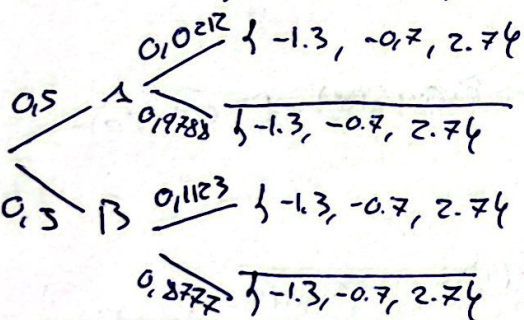 0,0212 {-1.3, -0,7, 2.74}
0,5 A
0,9788 {-1.3, -0.7, 2.74}
0,5 B 0,1123 {-1.3, -0.7, 2.74}
0,8777 {-1.3, -0.7, 2.74}